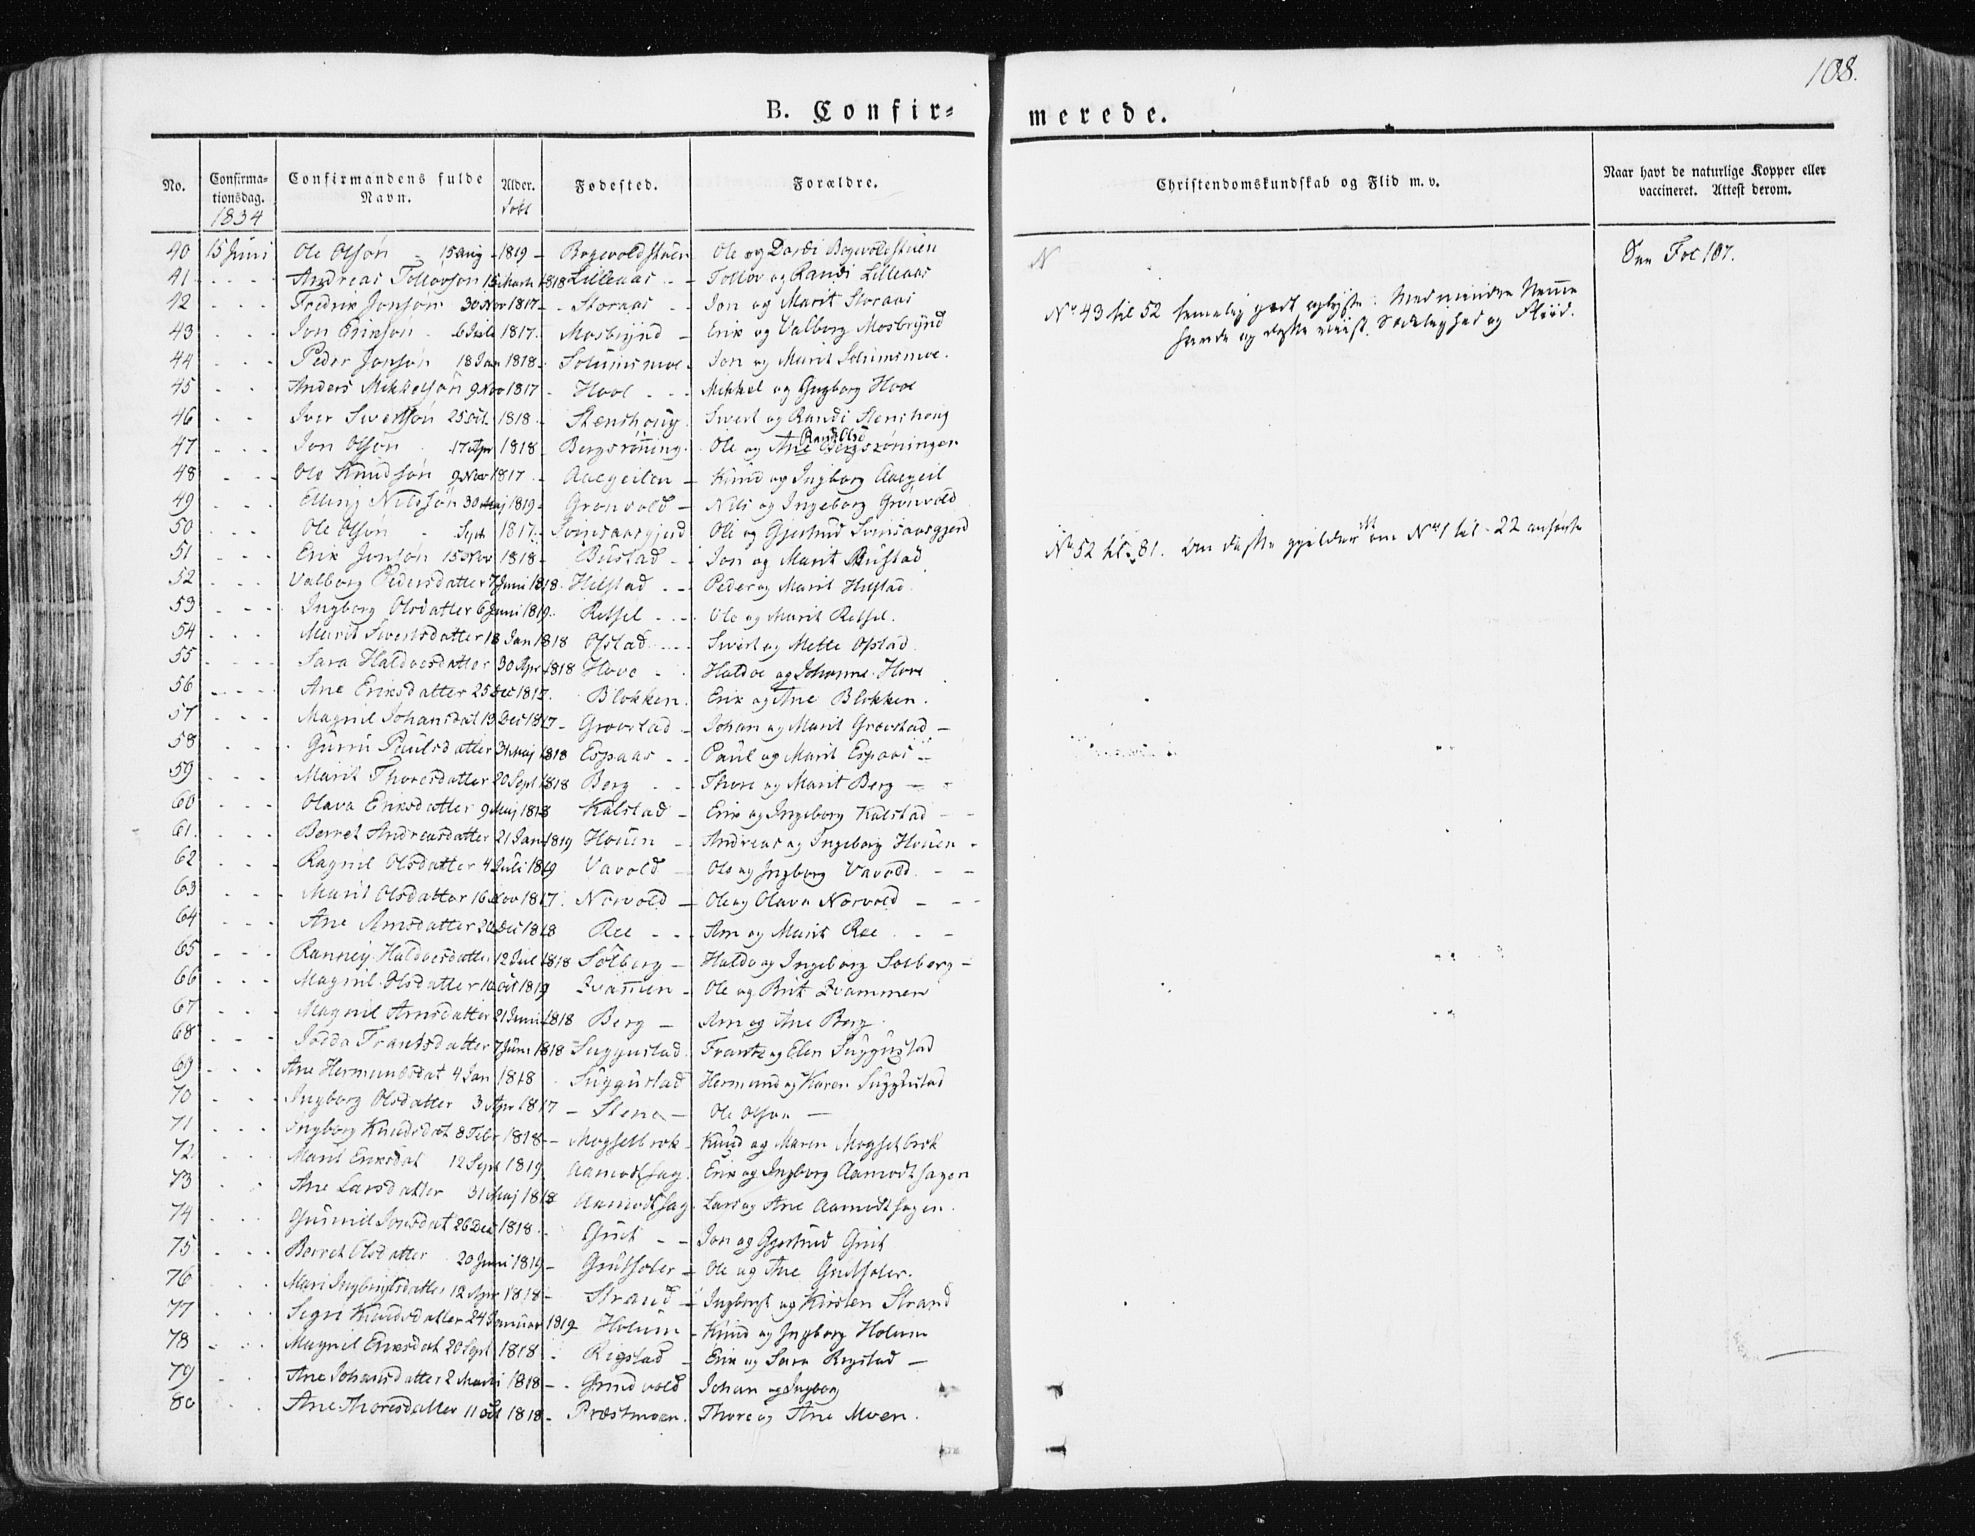 108.
B. Confir-
merede.
No. Confirma-tionsdag. Confirmandens fulde Navn. Alder. Fødested. Forældre. Christendomskundskab og Flid m.v. Naar havt de naturlige Kopper eller vaccineret. Attest derom.
1834 født
40 15 Juni Ole Olsøn 15 Aug 1819 Bogevoldstuen Ole og Dordi Bogevoldstuen
41 Andreas Tollovson 15 March 1818 Lilleaas Tollov og Randi Lilleaas
42 Fredrik Jonsøn 30 Nov 1817 Storaas Jon og Marit Storaas
43 Jon Eriksøn 6 Juli 1817 Mosbrynd Erik og Valborg Mosbrynd
44 Peder Jonsøn 18 Jan 1818 Solumsmoe Jon og Marit Solumsmoe.
45 Anders Mikkelsøn 9 Nov 1817 Hool Mikkel og Ingborg Hool
46 Iver Sivertsøn 25 Oct. 1818 Stenshoug Sivert og Randi Stenshoug
47 Jon Olsøn 17 Apr 1818 Bergsrønning Ole og Ane Bergsrønningen
48 Ole Knudsøn 9 Nov 1817 Aaegeilen Knud og Ingborg Aaegeil
49 Elling Nilssøn 30 Maj 1819 Grønvold Nils og Ingeborg Grønvold
50 Ole Olsøn Sept 1817 Svinsaasgjerd Ole og Gjertrud Svinsaasgjerd
51 Erik Jonsøn 15 Nov 1818 Bustad Jon og Marit Bustad
52 Valborg Pedersdatter 7 Juni 1818. Hilstad Peder og Marit Hilstad
53 Ingborg Olsdatter 6 Juni 1819. Retsel Ole og Marit Retsel.
54 Marit Sivertsdatter 18 Jan 1818 Ofstad Sivert og Mette Ofstad
55 Sara Haldoesdatter 30 Apr 1818 Hove Haldoe og Johanne Hove
56 Ane Eriksdatter 25 Dec 1817. Blokken. Erik og Ane Blokken.
57 Magnil Johansdat 13 Dec 1817 Grovstad Johan og Marit Grovstad
58 Gurru Paulsdatter 31 Maj 1818 Espaas Paul og Marit Espaas
59 Marit Thoresdatter 20 Sept 1818 Berg Thore og Marit Berg
60 Olava Eriksdatter 9 Maj 1818 Kalstad Erik og Ingeborg Kalstad
61. Berret Andreasdatter 21 Jan 1819 Houen Andreas og Ingeborg Houen
62 Ragnil Olsdatter 4 Juli 1819 Vavold Ole og Ingborg Vavold.
63 Marit Olsdatter 16 Nov 1817. Norvold Ole og Olava Norvold
64 Ane Arnsdatter Dec 1818 Ree Arn og Marit Ree
65 Ranney Haldoesdatter 12 Jul 1818 Solberg Haldo og Ingeborg Solberg
66 Magnil Olsdatter Oct 1819 Qvammen Ole og Brit Qvammen
67 Magnil Arnsdatter 21 Juni 1818 Berg Arn og Ane Berg.
68 Frantsdatter 7 Juni 1818 Suggustad Frants og Elen Suggustad
69 Ane Hermundsdat 4 Jan 1818 Suggustad Hermund og Karen Suggustad
70 Ingborg Olsdatter 3 Apr 1817 Stene Ole Olsøn
71 Ingborg Knudsdat 8 Febr 1818 Mogsetbrok Knud og Maren Mogsetbrok
72 Marit Eriksdat 12 Sept 1819 Aamodtsag. Erik og Ingborg Aamodtsagen
73 Ane Larsdatter 31 Maj 1818 Aamodtsag. Lars og Ane Aamodtsagen.
74 Gunnil Jonsdat 26 Dec 1818. Grut Jon og Gjertrud Grut
75 Berret Olsdatter 20 Juni 1819 Grutseter Ole og Ane Grutseter.
76 Mari Ingbrigtsdatter 12 Apr 1818 Strand Ingbrigt og Kirsten Strand
77 Segri Knudsdatter 24 Januar 1819 Holum Knud og Ingborg Holum
78 Magnil Eriksdat 20 Sept 1818 Regstad Erik og Sara Regstad
79 Ane Johansdatter 2 Marti 1818 Grindvold Johan og Ingborg
80 Ane Thoresdatter 11 Oct 1818 Præstmoen. Thore og Ane Moen.
N
No 43 til 52 temmelig godt oplyste. Med mindre
og Sædelighed og Fliid.
No 52 til 81. om No 1 til 22 anførte
See Fol 107.